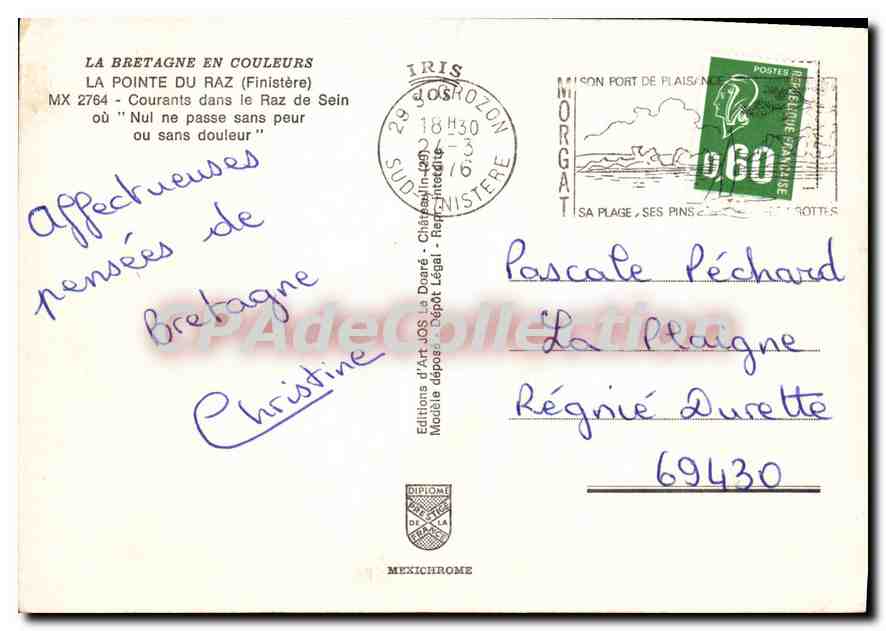 LA BRETAGNE EN COULEURS
LA POINTE DU RAZ (Finistère)
MX 2764 - Courants dans le Raz de Sein
où "Nul ne passe sans peur
ou sans douleur"
Affectueuses
pensées de
Bretagne
Christine
IRIS
JOS
29 CROZON
18H30
24-3
1976
SUD-FINISTERE
MORGAT
SON PORT DE PLAISANCE
SA PLAGE, SES PINS
GOTTES
POSTES
REPUBLIQUE FRANCAISE
0,60
Editions d'Art JOS Le Doaré - Châteaulin (29)
Modèle déposé - Dépôt Légal - Repr. interdite
Pascale Péchard
La Plaigne
Régnié Durette
69430
DIPLOME
PRESTIGE
DE LA
FRANCE
MEXICHROME
CPAdeCollection